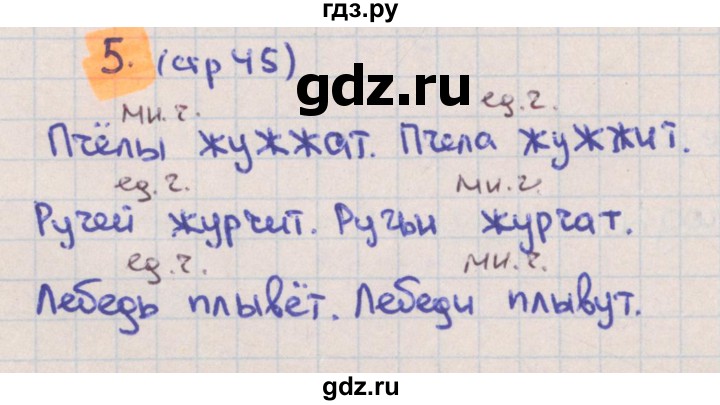 гдз.ру
5. (стр 45)
gdz.ru
мн.ч. ед.ч.
Пчёлы жужжат. Пчела жужжит.
ед.ч. мн.ч.
Ручей журчит. Ручьи журчат.
ед.ч. мн.ч.
Лебедь плывёт. Лебеди плывут.
gdz.ru